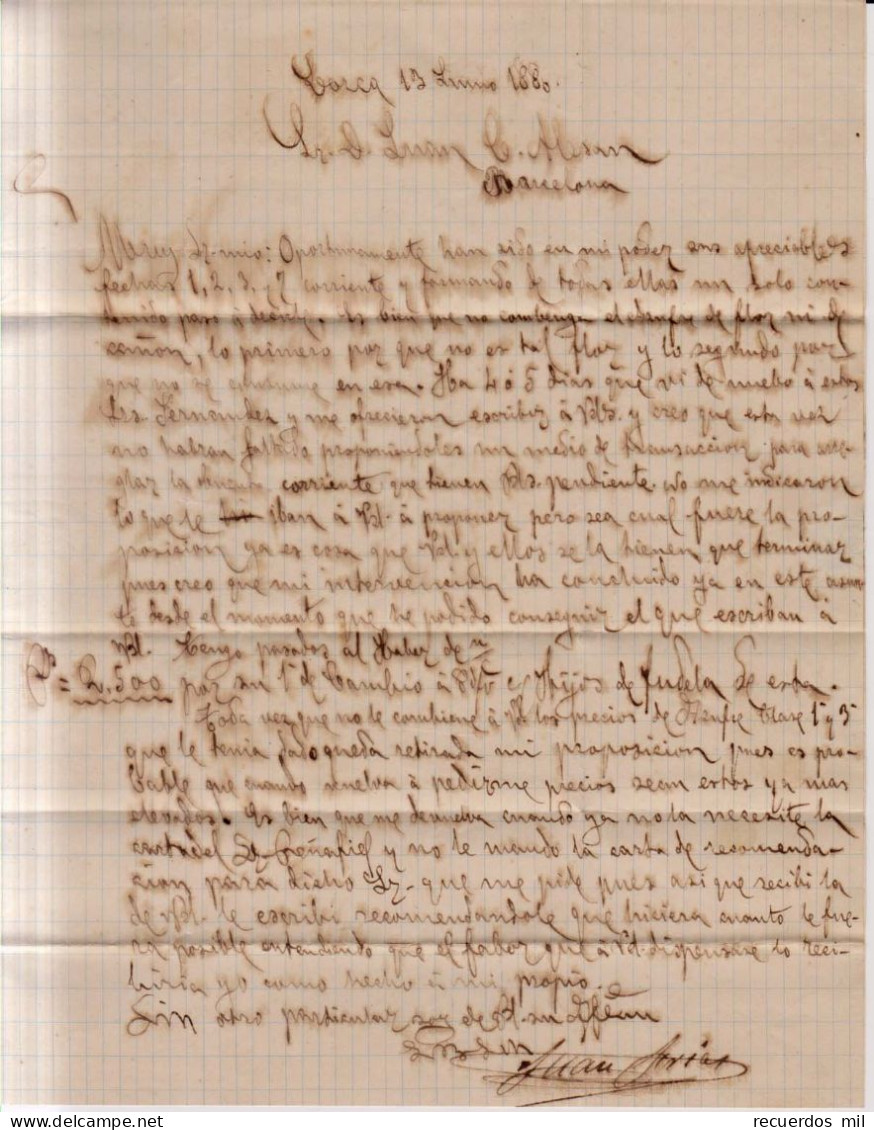 Lorca 13 Junio 1880.
Sr. D. Juan C. Alsan
Barcelona
Muy Sr. mio: Oportunamente han sido en mi poder sus apreciables
fechas 1, 2, 3, y 7 corriente y formando de todas ellas un solo con-
tenido paso á decirle. Es bien que no combenga el Azufre de flor ni de
cañon, lo primero por que no es tal flor y lo segundo por
que no se consume en esa. Ha 4 ó 5 dias que vi de nuebo á estos
Srs. Fernandez y me ofrecieron escribir á Vds. y creo que esta vez
no habran faltado proponiendoles un medio de transaccion para arre-
glar la cuenta corriente que tienen Vds. pendiente. No me indicaron
lo que le iban á Vd. á proponer pero sea cual fuere la pro-
posicion ya es cosa que Vd. y ellos se la tienen que terminar
pues creo que mi intervencion ha concluido ya en este asun-
to desde el momento que he podido conseguir el que escriban á
Vd. Tengo pasados al Haber de
Ps = 2.500 por su 1ª de Cambio á 8 d/v c/ Hijos de Tudela de esta.
Toda vez que no le combiene á Vd. los precios de Azufre Clase 1ª y 3ª
que le tenia dado queda retirada mi proposicion pues es pro-
bable que cuando vuelva á pedirme precios sean estos ya mas
elevados. Es bien que me devuelva cuando ya no la necesite la
carta del Sr. Peñafiel y no le mando la carta de recomenda-
cion para dicho Sr. que me pide pues asi que recibi la
de Vd. le escribi recomendandole que hiciera cuanto le fue-
ra posible entendiendo que el fabor que á Vd. dispensase lo reci-
biria yo como hecho á mi propio.
Sin otro particular soy de Vd. su
Juan
recuerdos mil